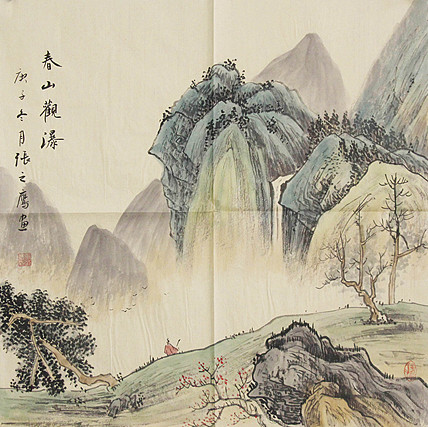 春山觀瀑
庚子冬月張之鷹畫